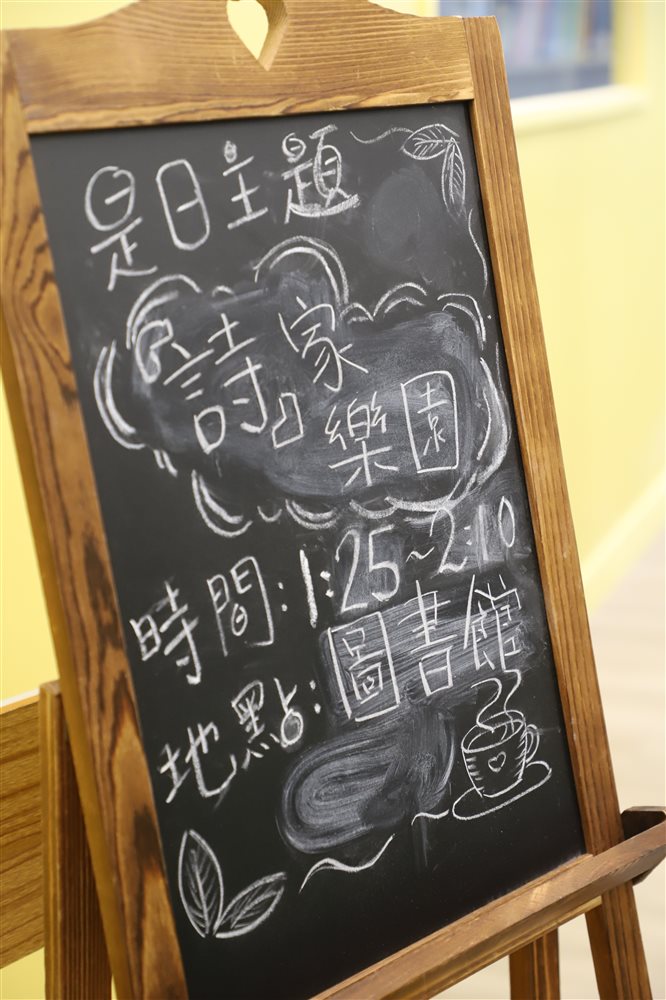 是日主題
「詩家
樂園」
時間:1:25~2:10
地點:圖書館